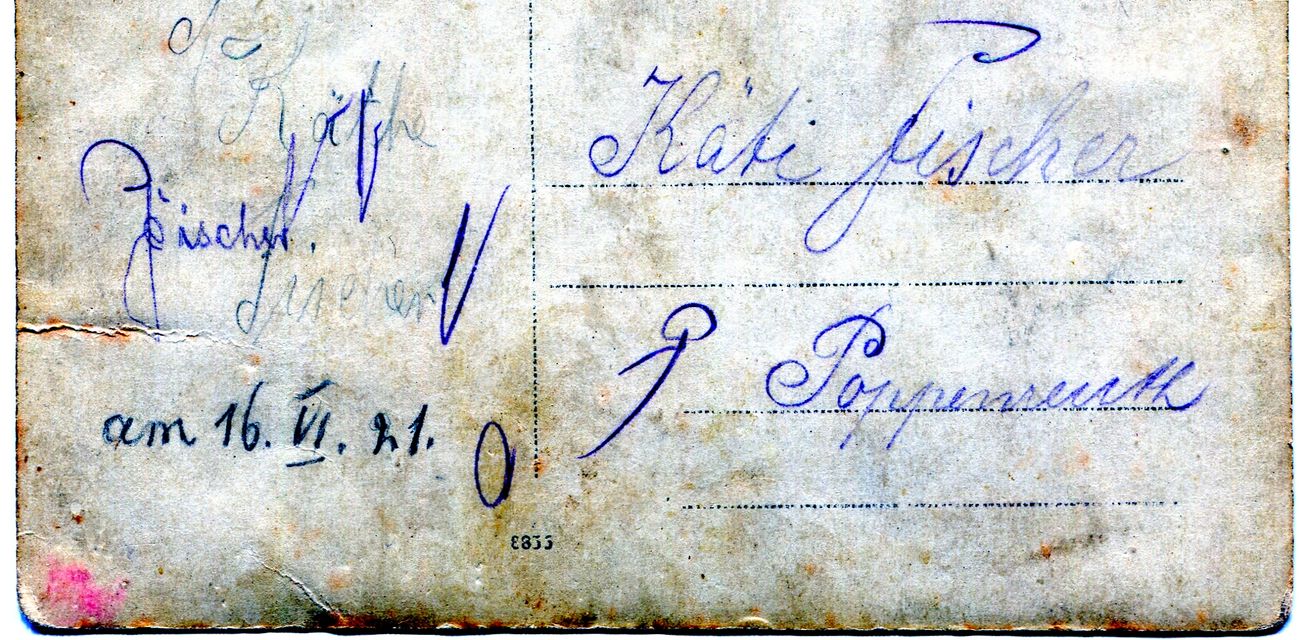 Käthe
Fischer.
Fischer
am 16. VI. 21.
Käti Fischer
P Poppenreuth
8833